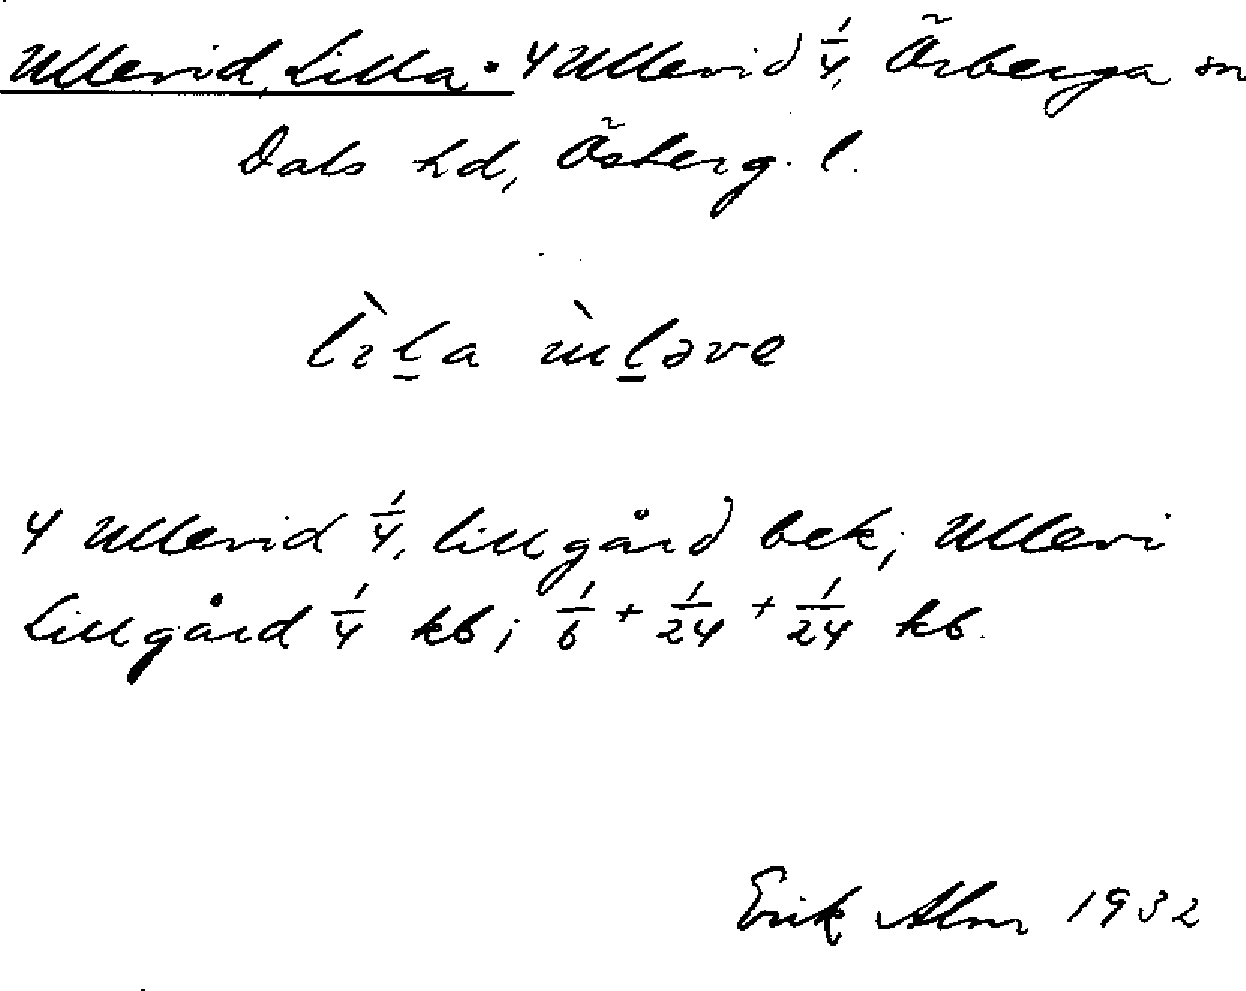 Ullevid, Lilla. 4 Ullevid 1/4, Örberga sn
Dals hd, Österg. l.
lìl̲a ùl̲əve
4 Ullevid 1/4, lillgård bek; Ullevi
Lillgård 1/4 kb; 1/6 + 1/24 + 1/24 kb.
Erik Alm 1932